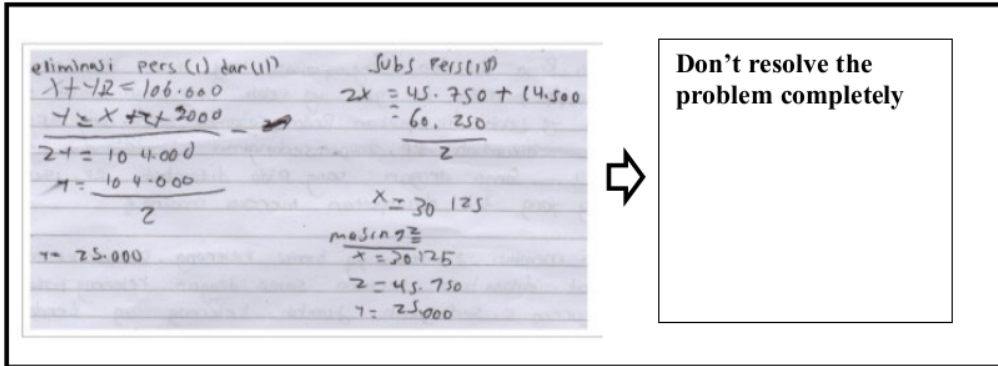 eliminasi pers (1) dan (11)
X+Y2 = 106.000
Y = X + 2000 -
2Y = 104.000
Y = 104.000
2
Y = 25.000
Subs Pers(11)
2x = 45.750 + 14.500
= 60.250
2
X = 30 125
masing2
x = 30125
z = 45.750
Y = 25.000
Don't resolve the
problem completely